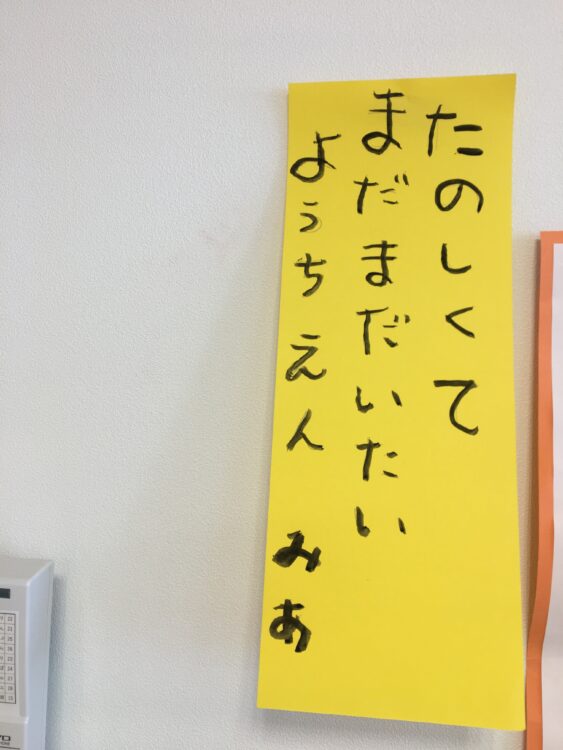 たのしくて
まだまだいたい
ようちえん みあ